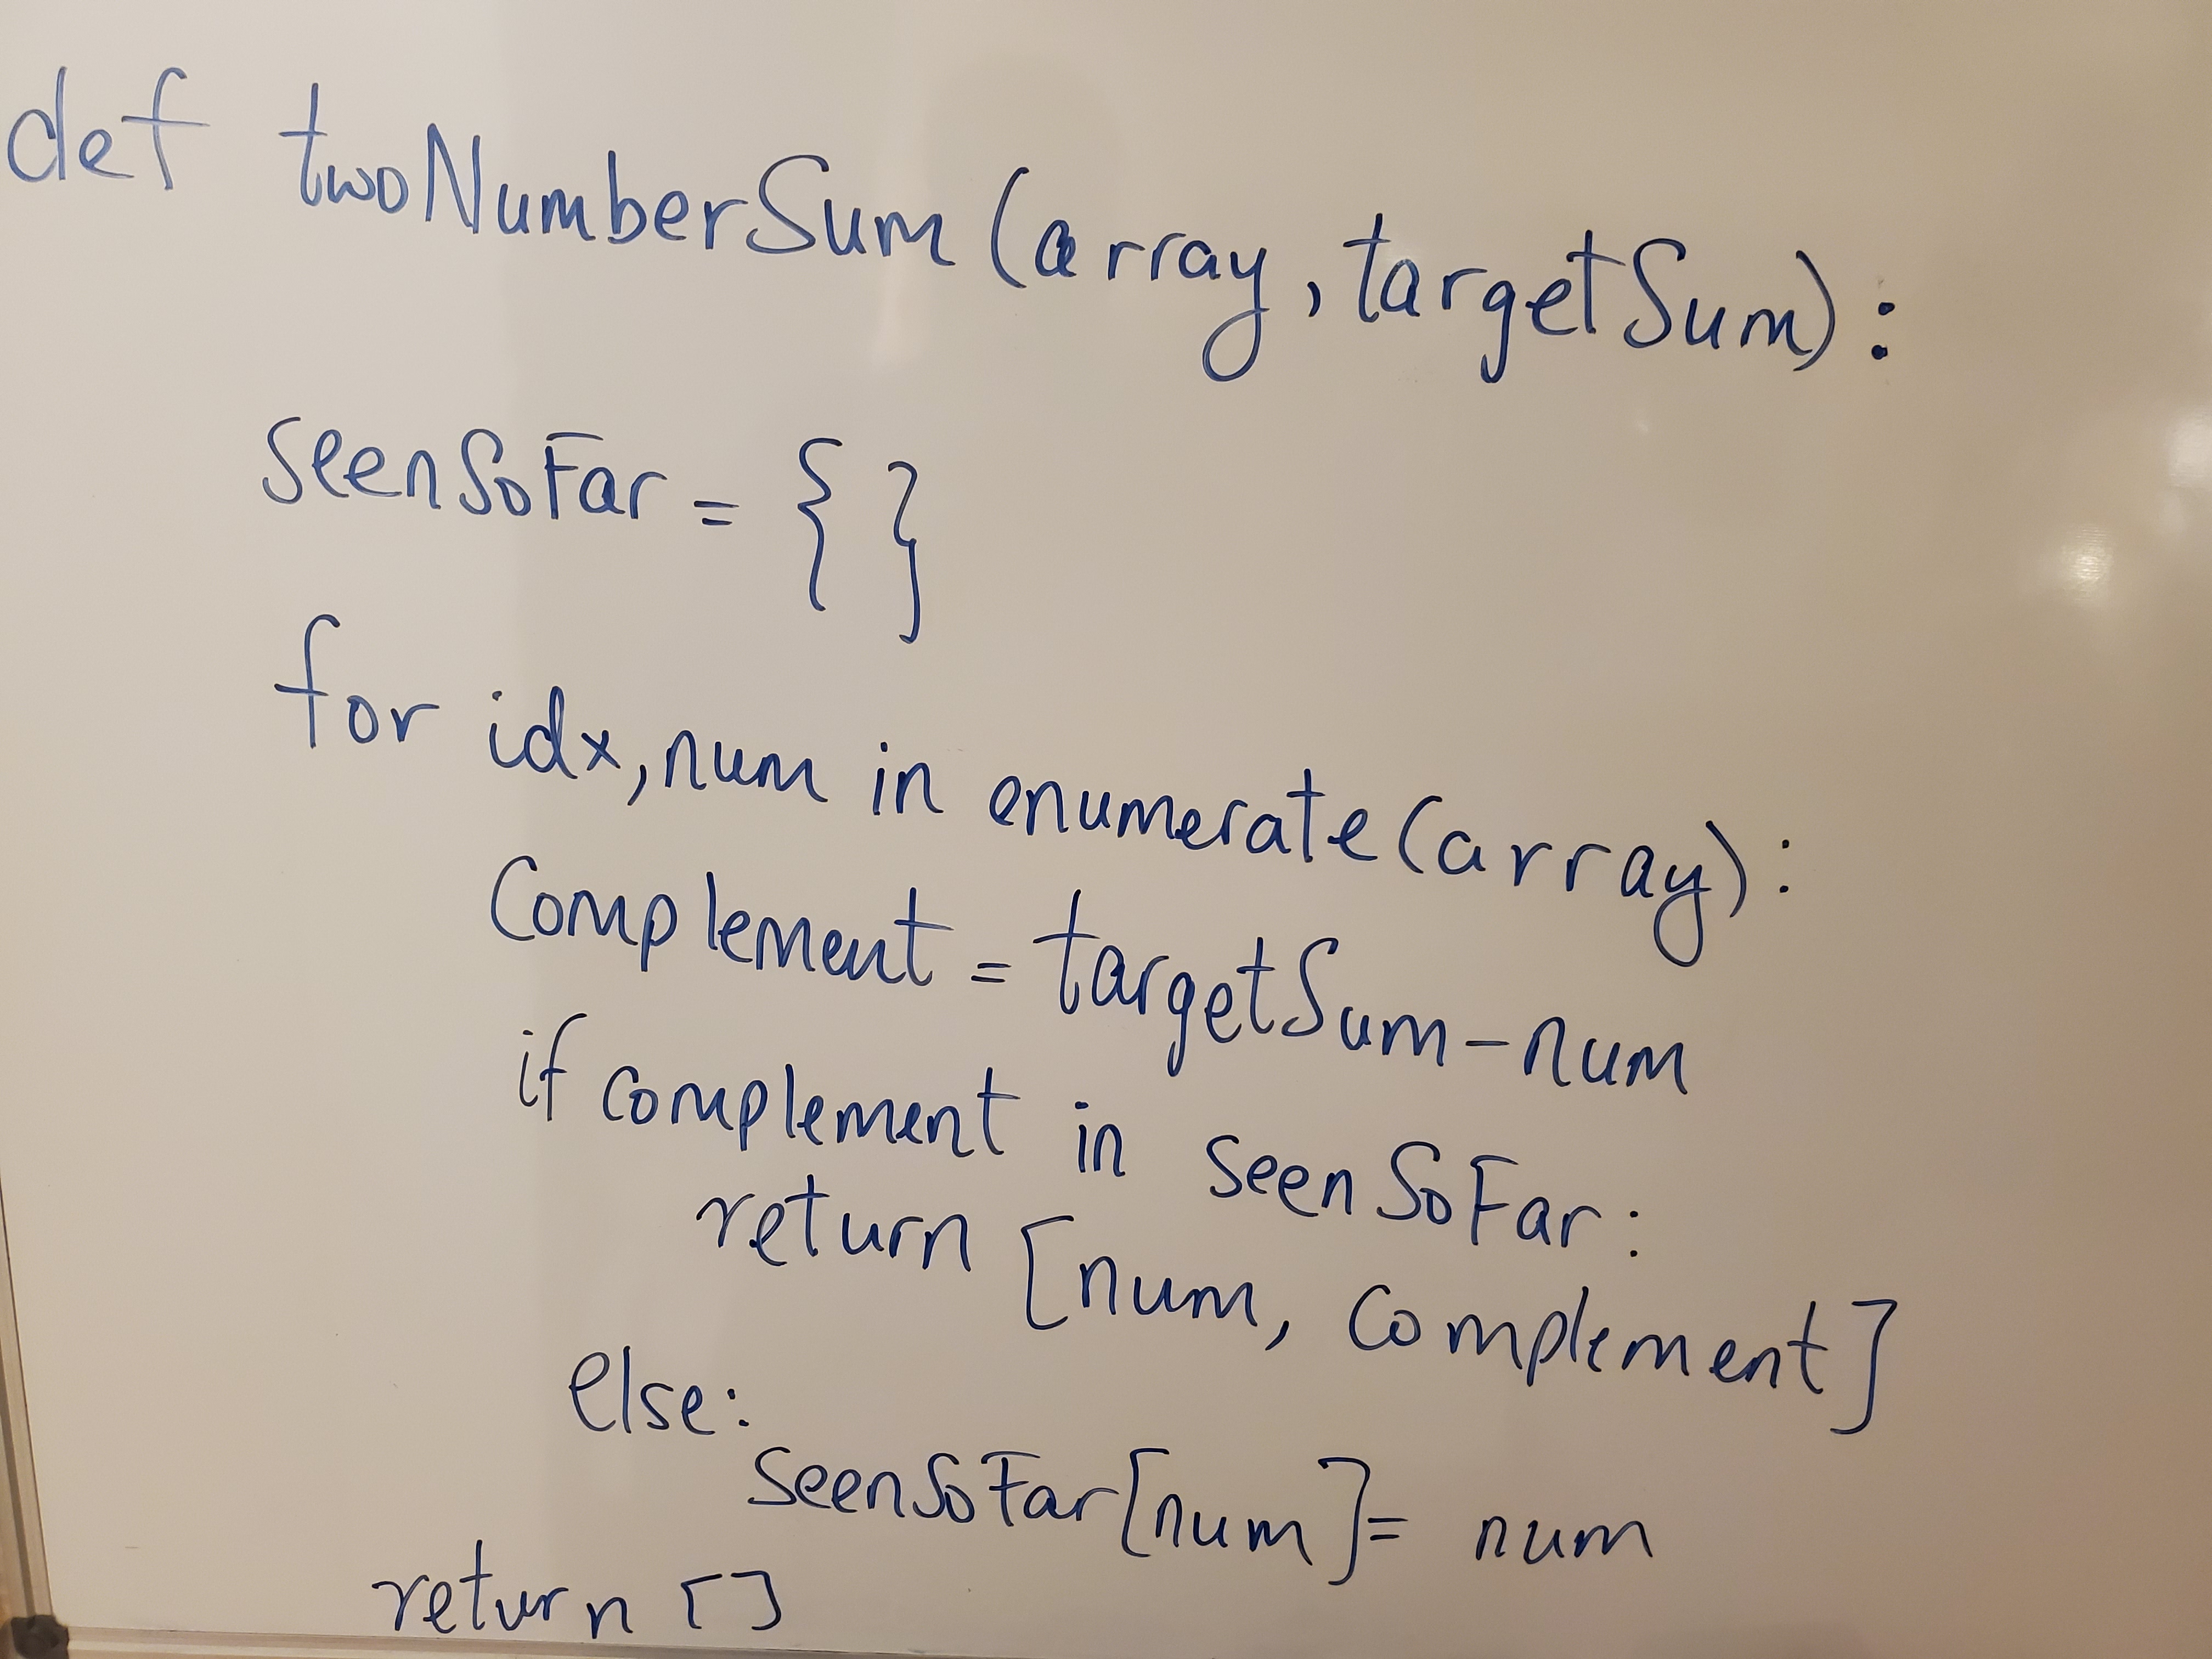 def twoNumberSum(array, targetSum):
seenSoFar = { }
for idx, num in enumerate(array):
Complement = targetSum - num
if complement in seenSoFar:
return [num, complement]
else:
seenSoFar[num] = num
return []